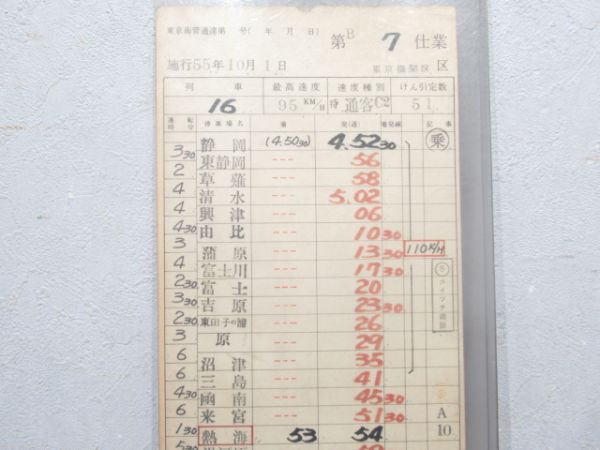 東京南管通達第 号( 年 月 日) 第B 7 仕業
施行55年10月1日 東京機関区 区
列車 最高速度 速度種別 けん引定数
16 95 KM/H 特 通客C2 51
運転時分 停車場名 着 発(通) 着発線 記事
静岡 (4.50 30) 4.52 30 乗
3 30 東静岡 --- 56
2 草薙 --- 58
4 清水 --- 5.02
4 興津 --- 06
4 由比 --- 10 30
3 蒲原 --- 13 30 110K/H
4 富士川 --- 17 30
2 30 富士 --- 20
3 30 吉原 --- 23 30
2 30 東田子の浦 --- 26
3 原 --- 29
6 沼津 --- 35
6 三島 --- 41
4 30 函南 --- 45 30
6 来宮 --- 51 30 A
1 30 熱海 53 54 10
5 30